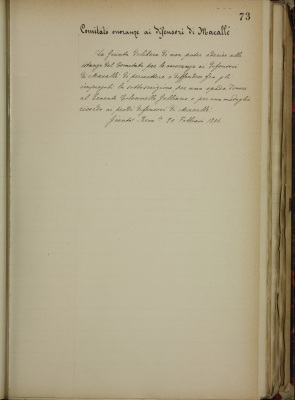 73
Comitato onoranze ai difensori di Macallè
La Giunta delibera di non poter aderire alla
istanza del Comitato per le onoranze ai difensori
di Macallè di permettere e diffondere fra gli
impiegati la sottoscrizione per una spada d'onore
al Tenente Colonnello Galliano e per una medaglia
ricordo ai prodi difensori di Macallè.
Giunta 20 Febbraio 1896